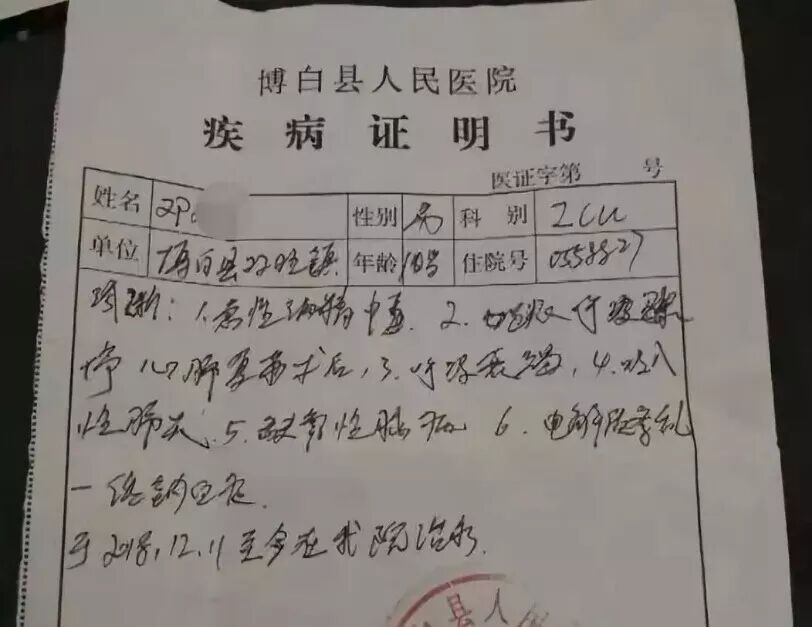 博白县人民医院
疾病证明书
医证字第 号
姓名 邓 性别 男 科别 ICU
单位 博白县双旺镇 年龄 住院号 0558827
诊断：1.急性酒精中毒. 2. 呼吸骤
停心肺复苏术后，3.呼吸衰竭，4.吸入
性肺炎. 5. 缺氧性脑病 6. 电解质紊乱
一低钠血症.
于2018.12.11至今在我院治疗.
县人